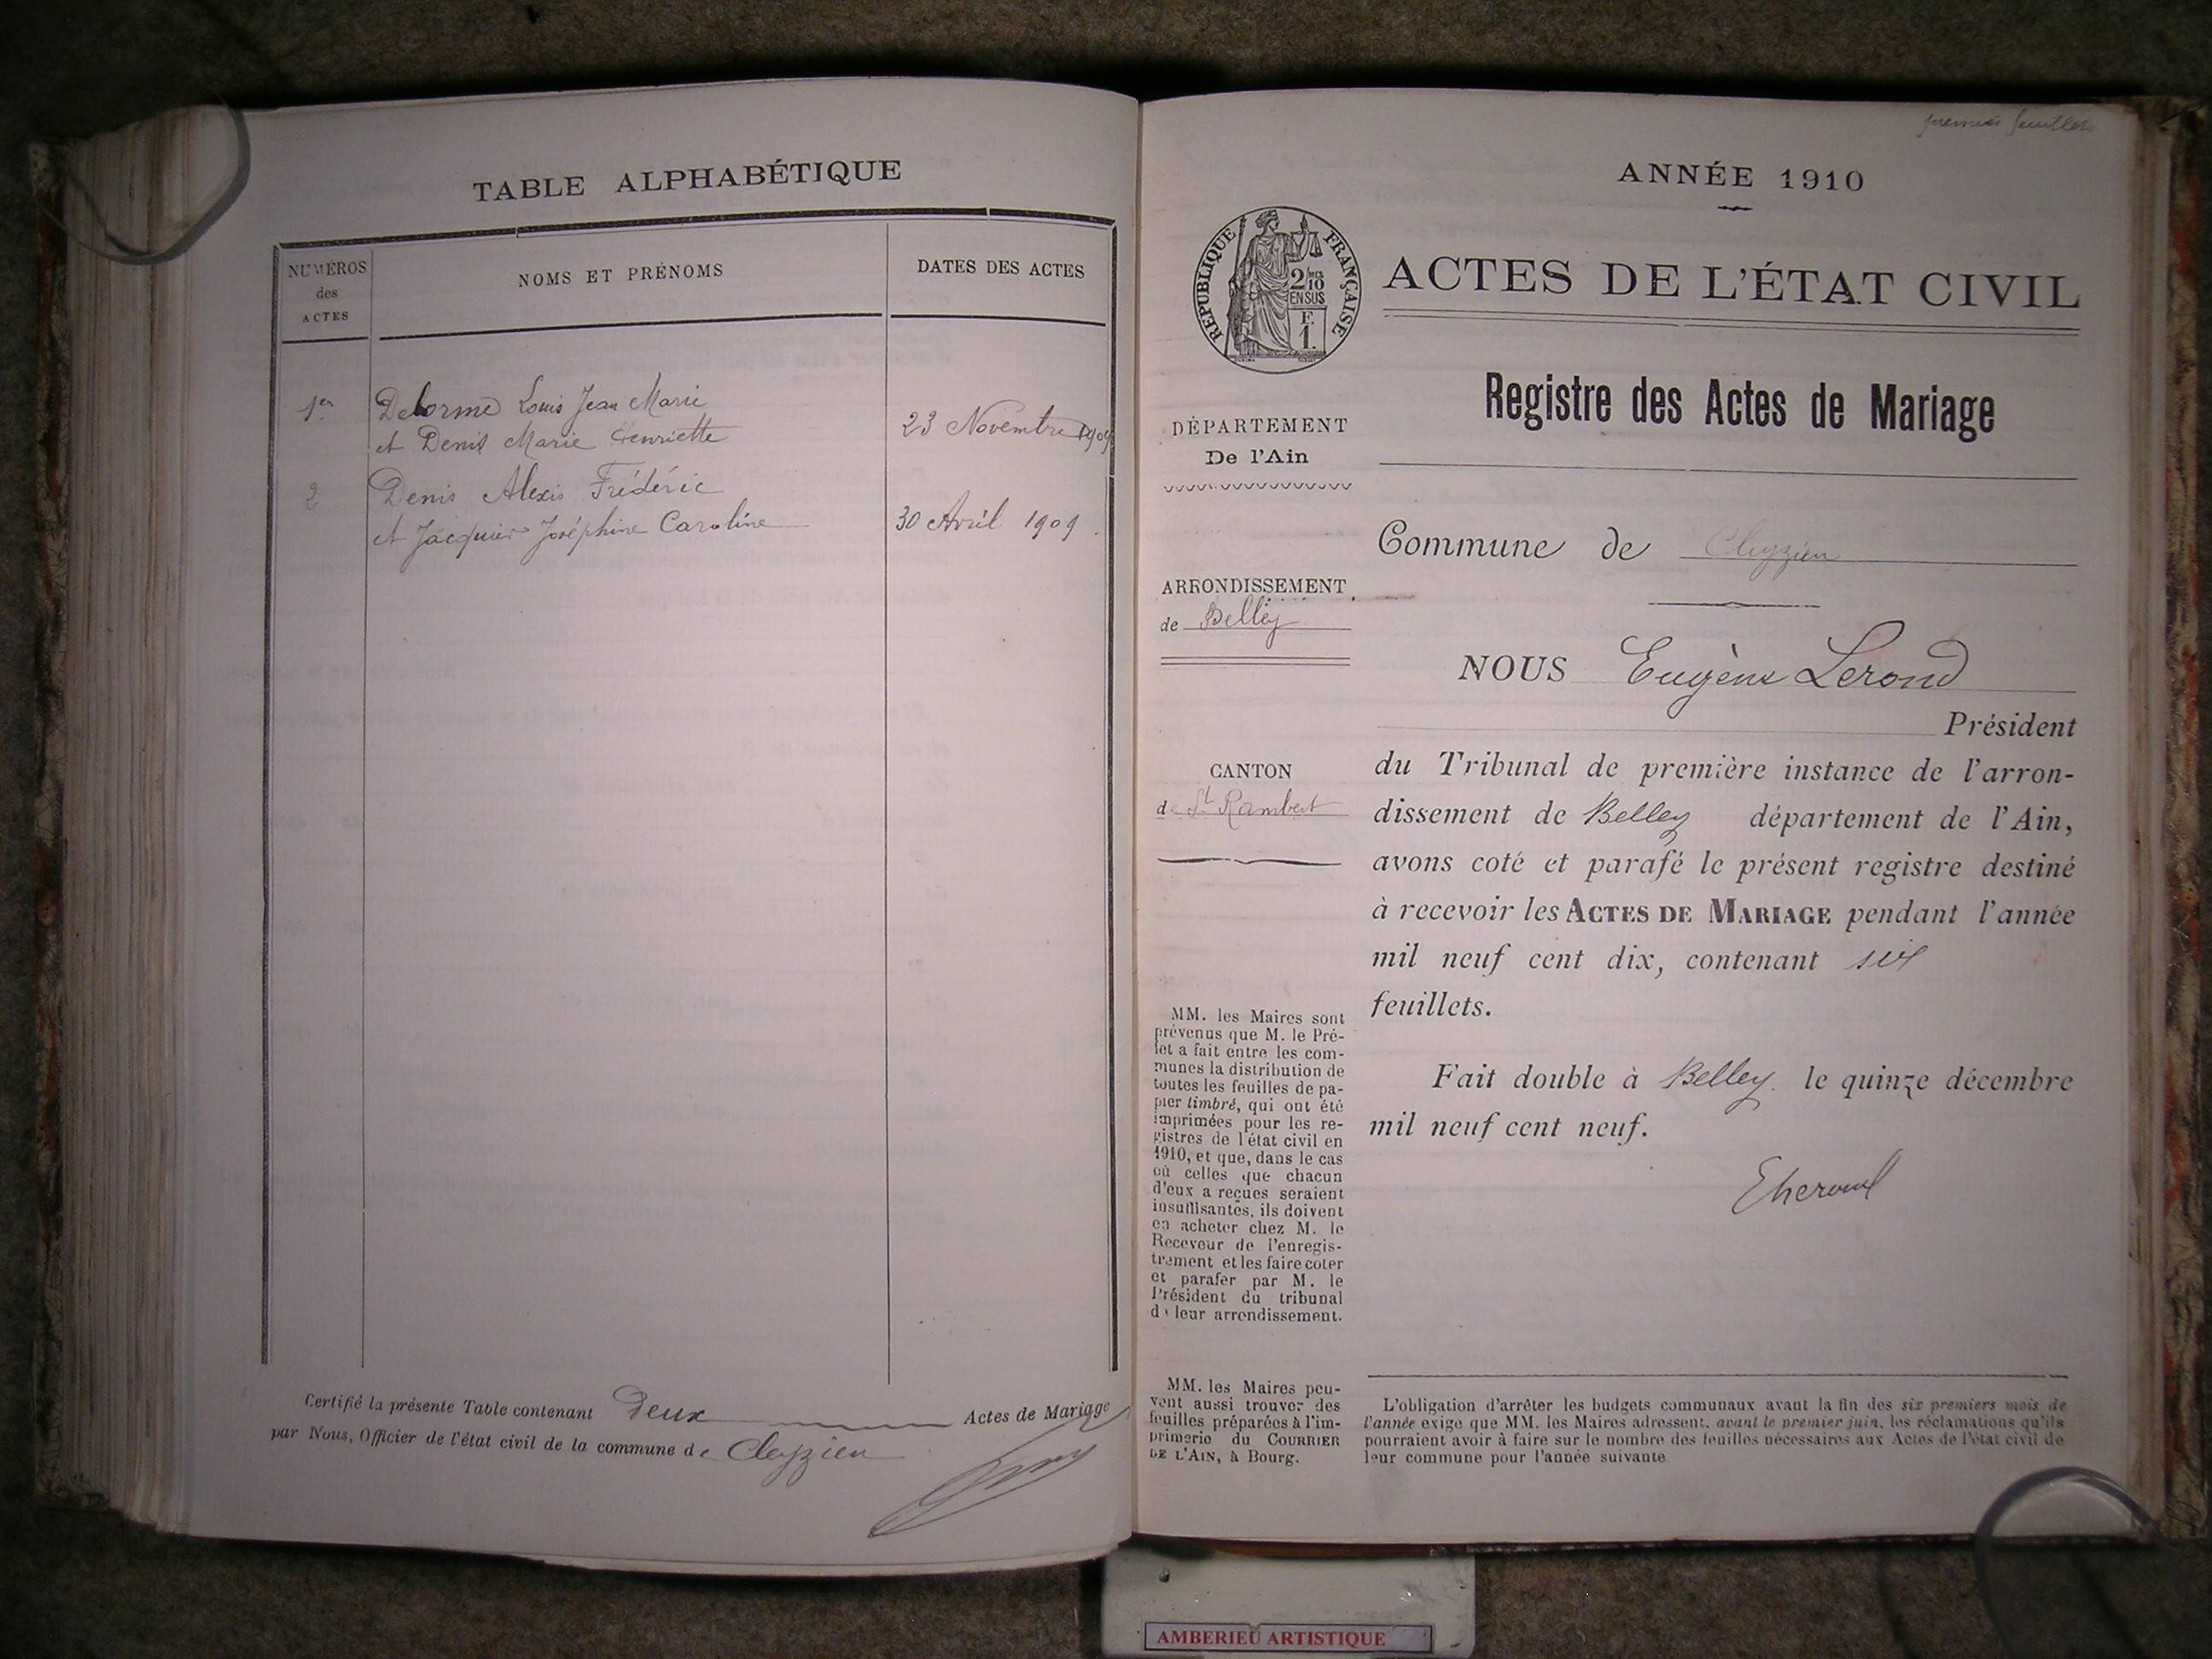 TABLE ALPHABÉTIQUE
NUMÉROS
des
ACTES
NOMS ET PRÉNOMS
DATES DES ACTES
1er
Delorme Louis Jean Marie
et Denis Marie Henriette
23 Novembre 1909
2
Denis Alexis Frédéric
et Jacquier Joséphine Caroline
30 Avril 1909.
Certifié la présente Table contenant Deux Actes de Mariage
par Nous, Officier de l'état civil de la commune de Cleyzieu
premier feuillet
ANNÉE 1910
RÉPUBLIQUE FRANÇAISE
2/10
MES
EN SUS
F.
1.
ACTES DE L'ÉTAT CIVIL
Registre des Actes de Mariage
DÉPARTEMENT
De l'Ain
ARRONDISSEMENT
de Belley
CANTON
de St Rambert
MM. les Maires sont
prévenus que M. le Pré-
fet a fait entre les com-
munes la distribution de
toutes les feuilles de pa-
pier timbré, qui ont été
imprimées pour les re-
gistres de l'état civil en
1910, et que, dans le cas
où celles que chacun
d'eux a reçues seraient
insuffisantes, ils doivent
en acheter chez M. le
Receveur de l'enregis-
trement et les faire coter
et parafer par M. le
Président du tribunal
de leur arrondissement.
MM. les Maires peu-
vent aussi trouver des
feuilles préparées à l'im-
primerie du COURRIER
DE L'AIN, à Bourg.
Commune de Cleyzieu
NOUS Eugène Lerond
Président
du Tribunal de première instance de l'arron-
dissement de Belley département de l'Ain,
avons coté et parafé le présent registre destiné
à recevoir les ACTES DE MARIAGE pendant l'année
mil neuf cent dix, contenant six
feuillets.
Fait double à Belley. le quinze décembre
mil neuf cent neuf.
L'obligation d'arrêter les budgets communaux avant la fin des six premiers mois de
l'année exige que MM. les Maires adressent, avant le premier juin, les réclamations qu'ils
pourraient avoir à faire sur le nombre des feuilles nécessaires aux Actes de l'état civil de
leur commune pour l'année suivante
AMBERIEU ARTISTIQUE